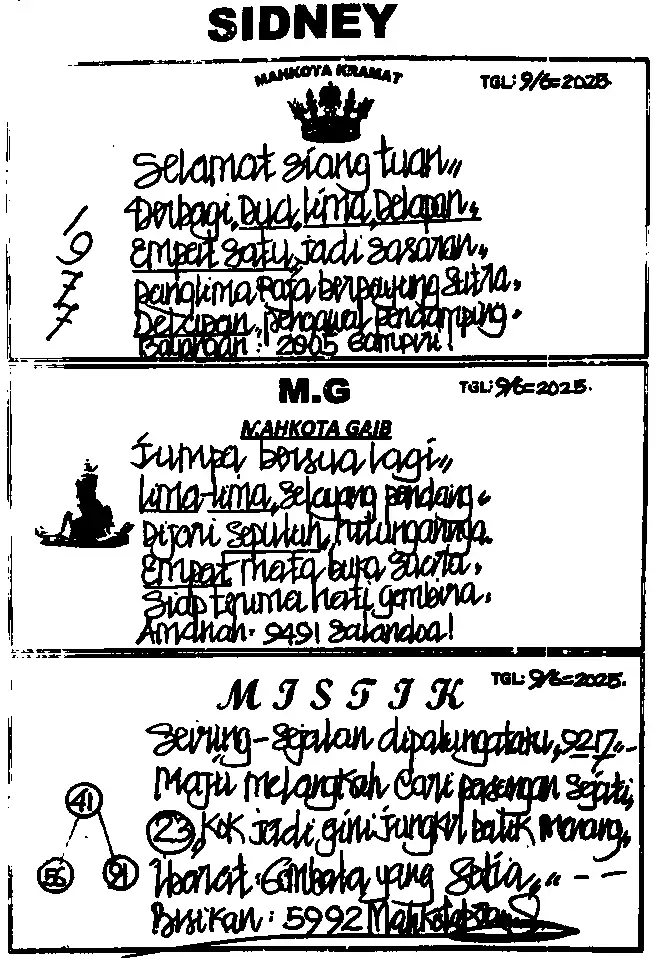 SIDNEY
MAHKOTA KRAMAT
TGL: 9/6=2025.
Selamat siang tuan,,
Berbagi, Dua, lima, Delapan,
Empat Satu, jadi sasaran,
1
9
7
7
panglima Raja berpayung Sutra,
Delapan, pengawal pendamping.
Bayangan: 2005
M.G
TGL: 9/6=2025.
MAHKOTA GAIB
Jumpa bersua lagi,,
lima-lima, Selayang pandang
Dijari Sepuluh, hitungannya.
Empat mata buka
Siap terima hati gembira,
Amanah. 9491
MISTIK
TGL: 9/6=2025.
Seiring-Sejalan 9217,,-
Maju melangkah Cari pasangan Sejati,
41
23, KoK jadi gini jungkir balik
56
91
Ibarat: Gembala yang Setia,,
Bisikan: 5992